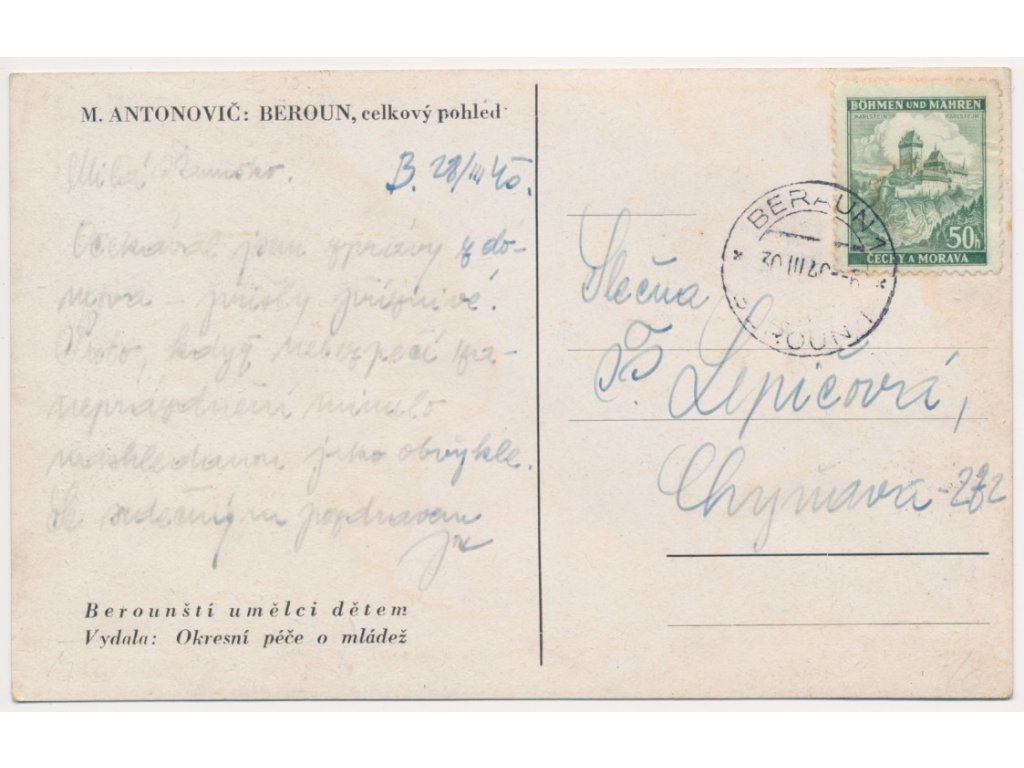 M. ANTONOVIČ: BEROUN, celkový pohled
B. 28/III 40.
Milá
Očekával jsem zprávy z do-
mova – příznivé.
Proto, když nebezpečí za-
neprázdnění minulo
jako obvykle.
Se srdečným pozdravem
Berounští umělci dětem
Vydala: Okresní péče o mládež
BÖHMEN UND MÄHREN
KARLSTEIN KARLŠTEJN
50h
ČECHY A MORAVA
BERAUN 1
BEROUN 1
Slečna
Lepičová,
Chyňava-